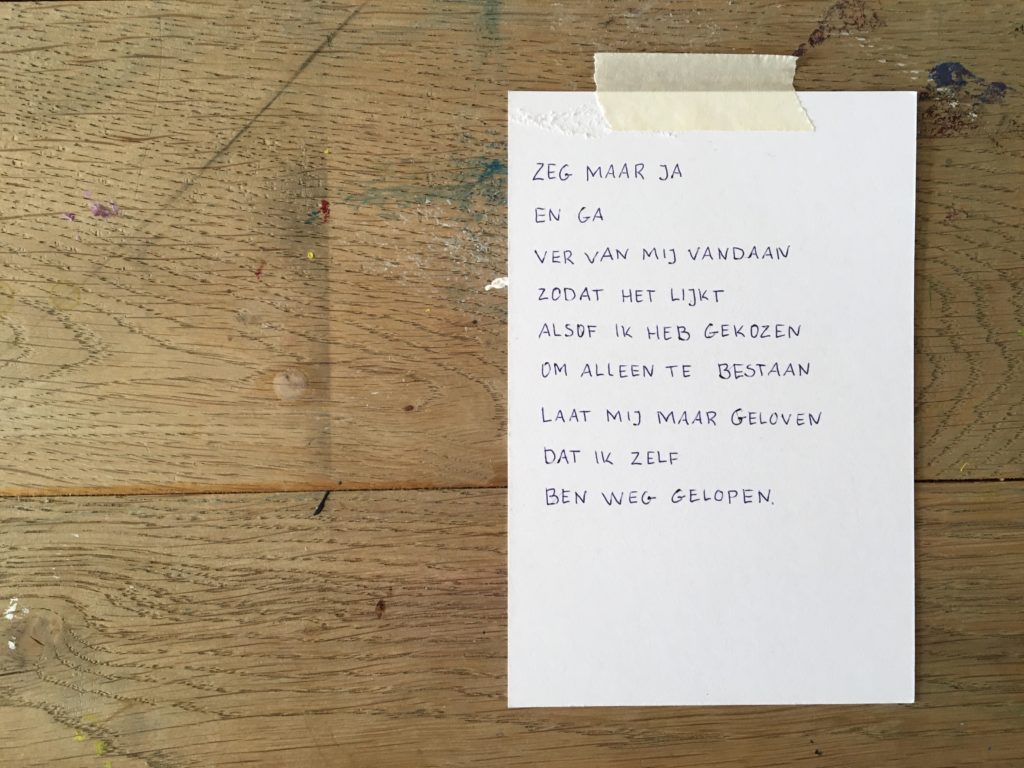 ZEG MAAR JA
EN GA
VER VAN MIJ VANDAAN
ZODAT HET LIJKT
ALSOF IK HEB GEKOZEN
OM ALLEEN TE BESTAAN
LAAT MIJ MAAR GELOVEN
DAT IK ZELF
BEN WEG GELOPEN.